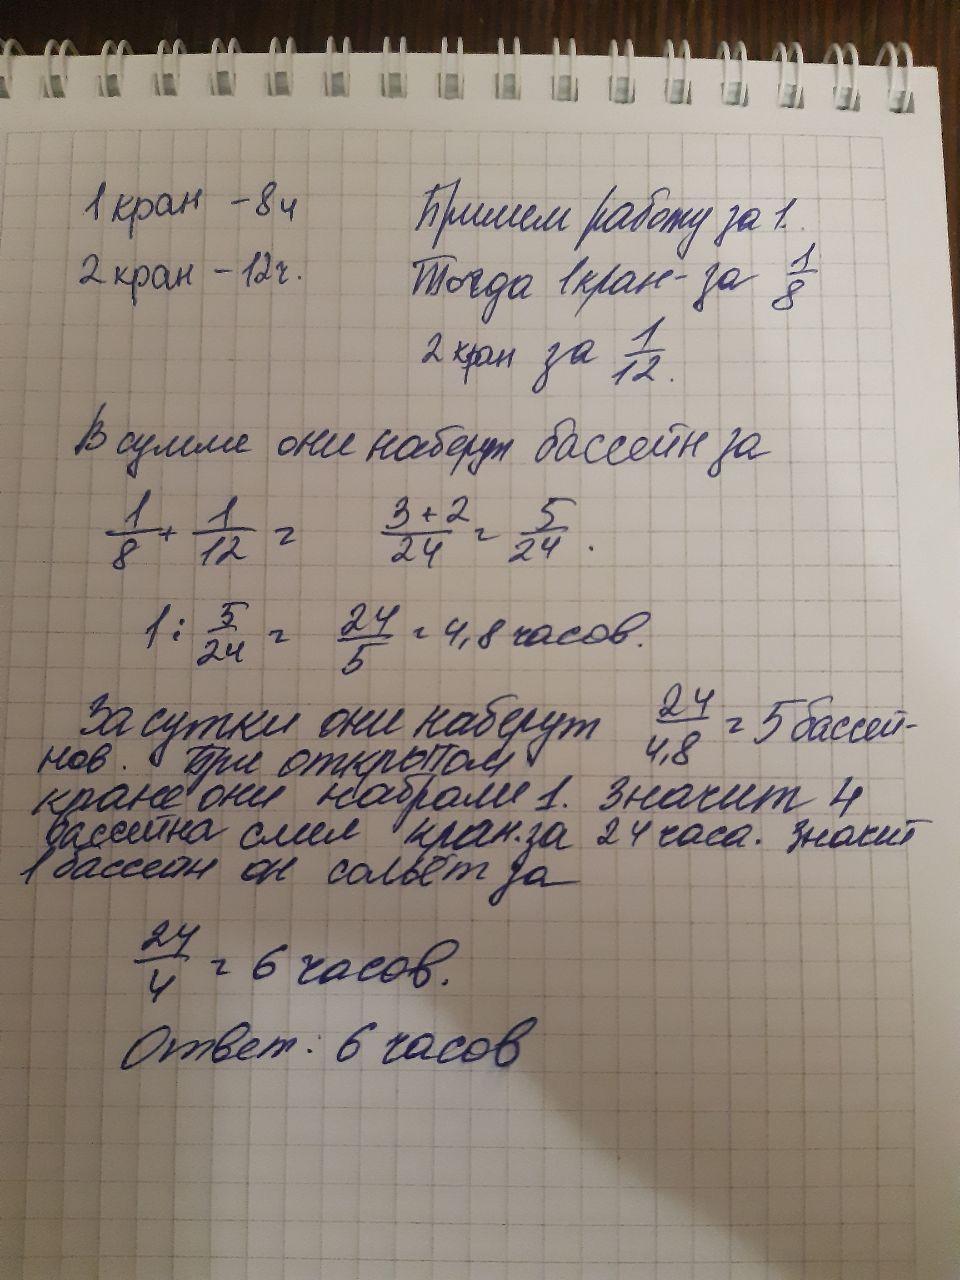 1 кран - 8ч
2 кран - 12ч.
Примем работу за 1.
Тогда 1 кран - за 1/8
2 кран за 1/12.
В сумме они наберут бассейн за
1/8 + 1/12 = (3+2)/24 = 5/24.
1 : 5/24 = 24/5 = 4,8 часов.
За сутки они наберут 24/4,8 = 5 бассей-
нов. При открытом
кране они набрали 1. Значит 4
бассейна слил кран за 24 часа. Значит
1 бассейн он сольёт за
24/4 = 6 часов.
Ответ: 6 часов